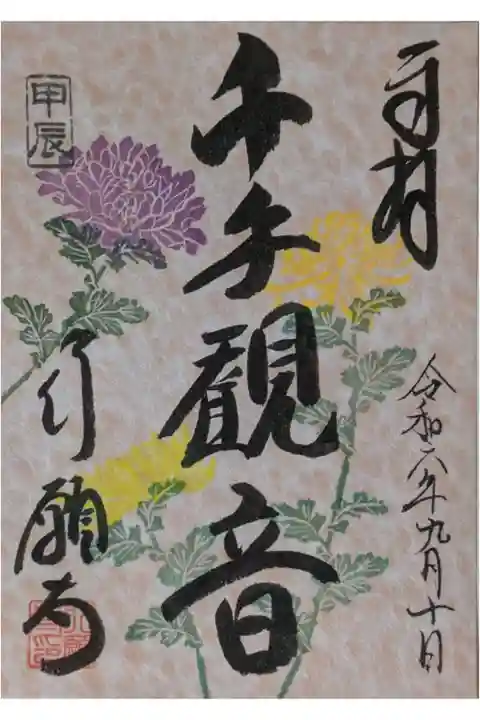 奉拝
令和六年九月十日
千手観音
甲辰
行願寺